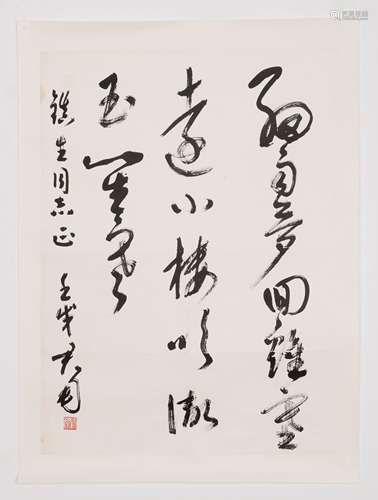 細雨夢回雞塞
遠小樓吹徹
玉笙寒
鎮生同志正
壬戌